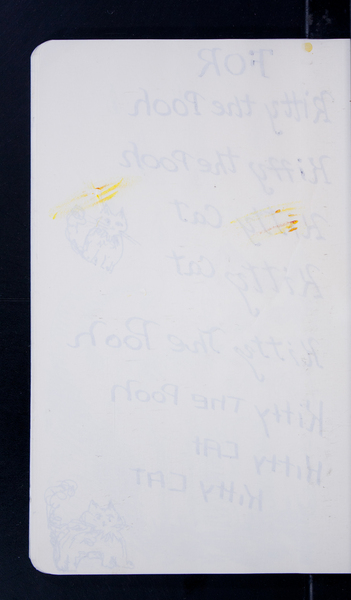 FOR
Kitty the Pooh
Kitty the Pooh
Kitty Cat
Kitty Cat
Kitty The Pooh
Kitty The Pooh
Kitty CAT
Kitty CAT